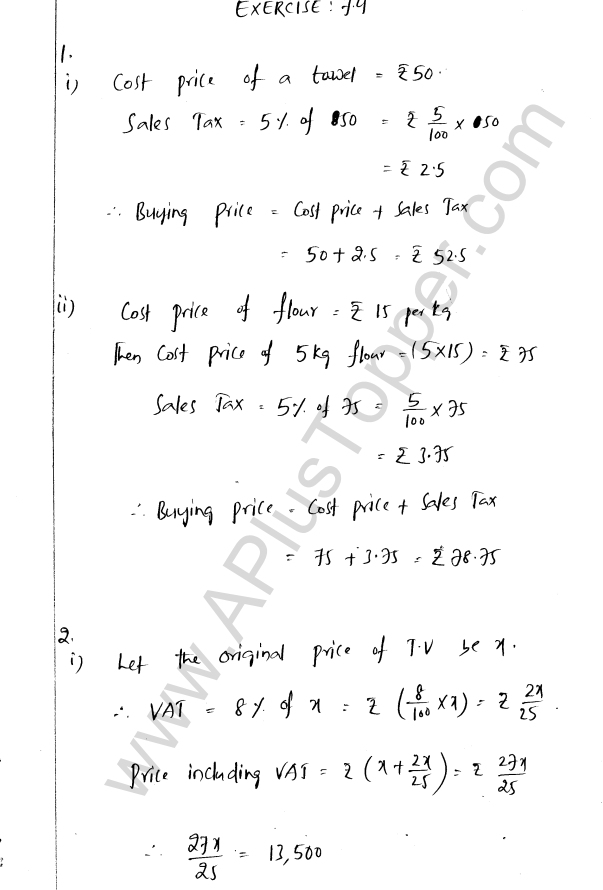 EXERCISE: 7.4
1.
i) Cost price of a towel = ₹50.
Sales Tax = 5% of 50 = ₹ 5/100 × 50
= ₹ 2.5
∴ Buying price = Cost price + Sales Tax
= 50 + 2.5 = ₹ 52.5
ii) Cost price of flour = ₹ 15 per kg
Then Cost price of 5kg flour = (5×15) = ₹ 75
Sales Tax = 5% of 75 = 5/100 × 75
= ₹ 3.75
∴ Buying price = Cost price + Sales Tax
= 75 + 3.75 = ₹ 78.75
2.
i) Let the original price of T.V be x.
∴ VAT = 8% of x = ₹ (8/100 × x) = ₹ 2x/25.
Price including VAT = ₹ (x + 2x/25) = ₹ 27x/25
∴ 27x/25 = 13,500
www.APlusTopper.com